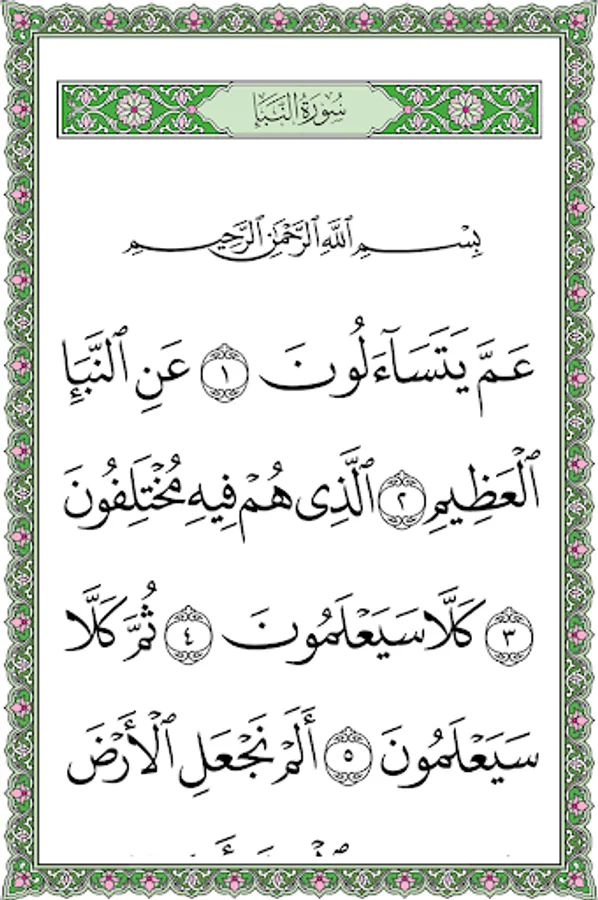 سُورَةُ النَّبَإِ
بِسْمِ ٱللَّهِ ٱلرَّحْمَٰنِ ٱلرَّحِيمِ
عَمَّ يَتَسَآءَلُونَ ١ عَنِ ٱلنَّبَإِ
ٱلْعَظِيمِ ٢ ٱلَّذِى هُمْ فِيهِ مُخْتَلِفُونَ
٣ كَلَّا سَيَعْلَمُونَ ٤ ثُمَّ كَلَّا
سَيَعْلَمُونَ ٥ أَلَمْ نَجْعَلِ ٱلْأَرْضَ